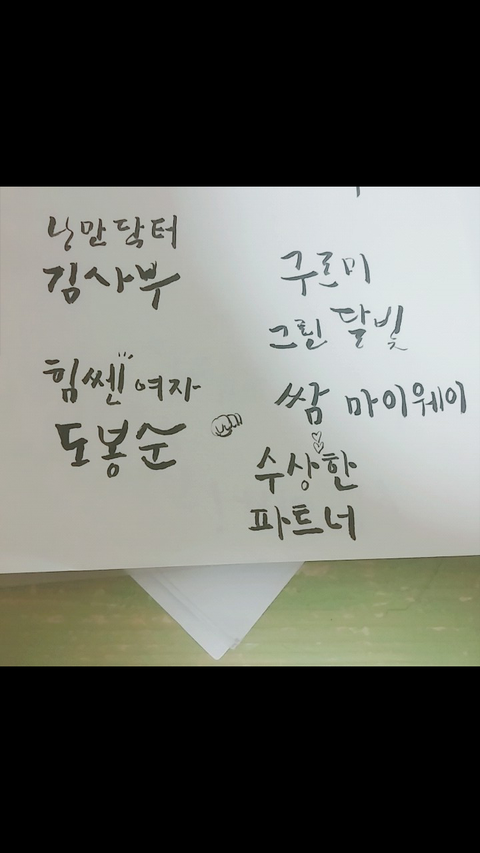 낭만닥터
김사부
힘쎈 여자
도봉순
구르미
그린 달빛
쌈 마이웨이
수상한
파트너